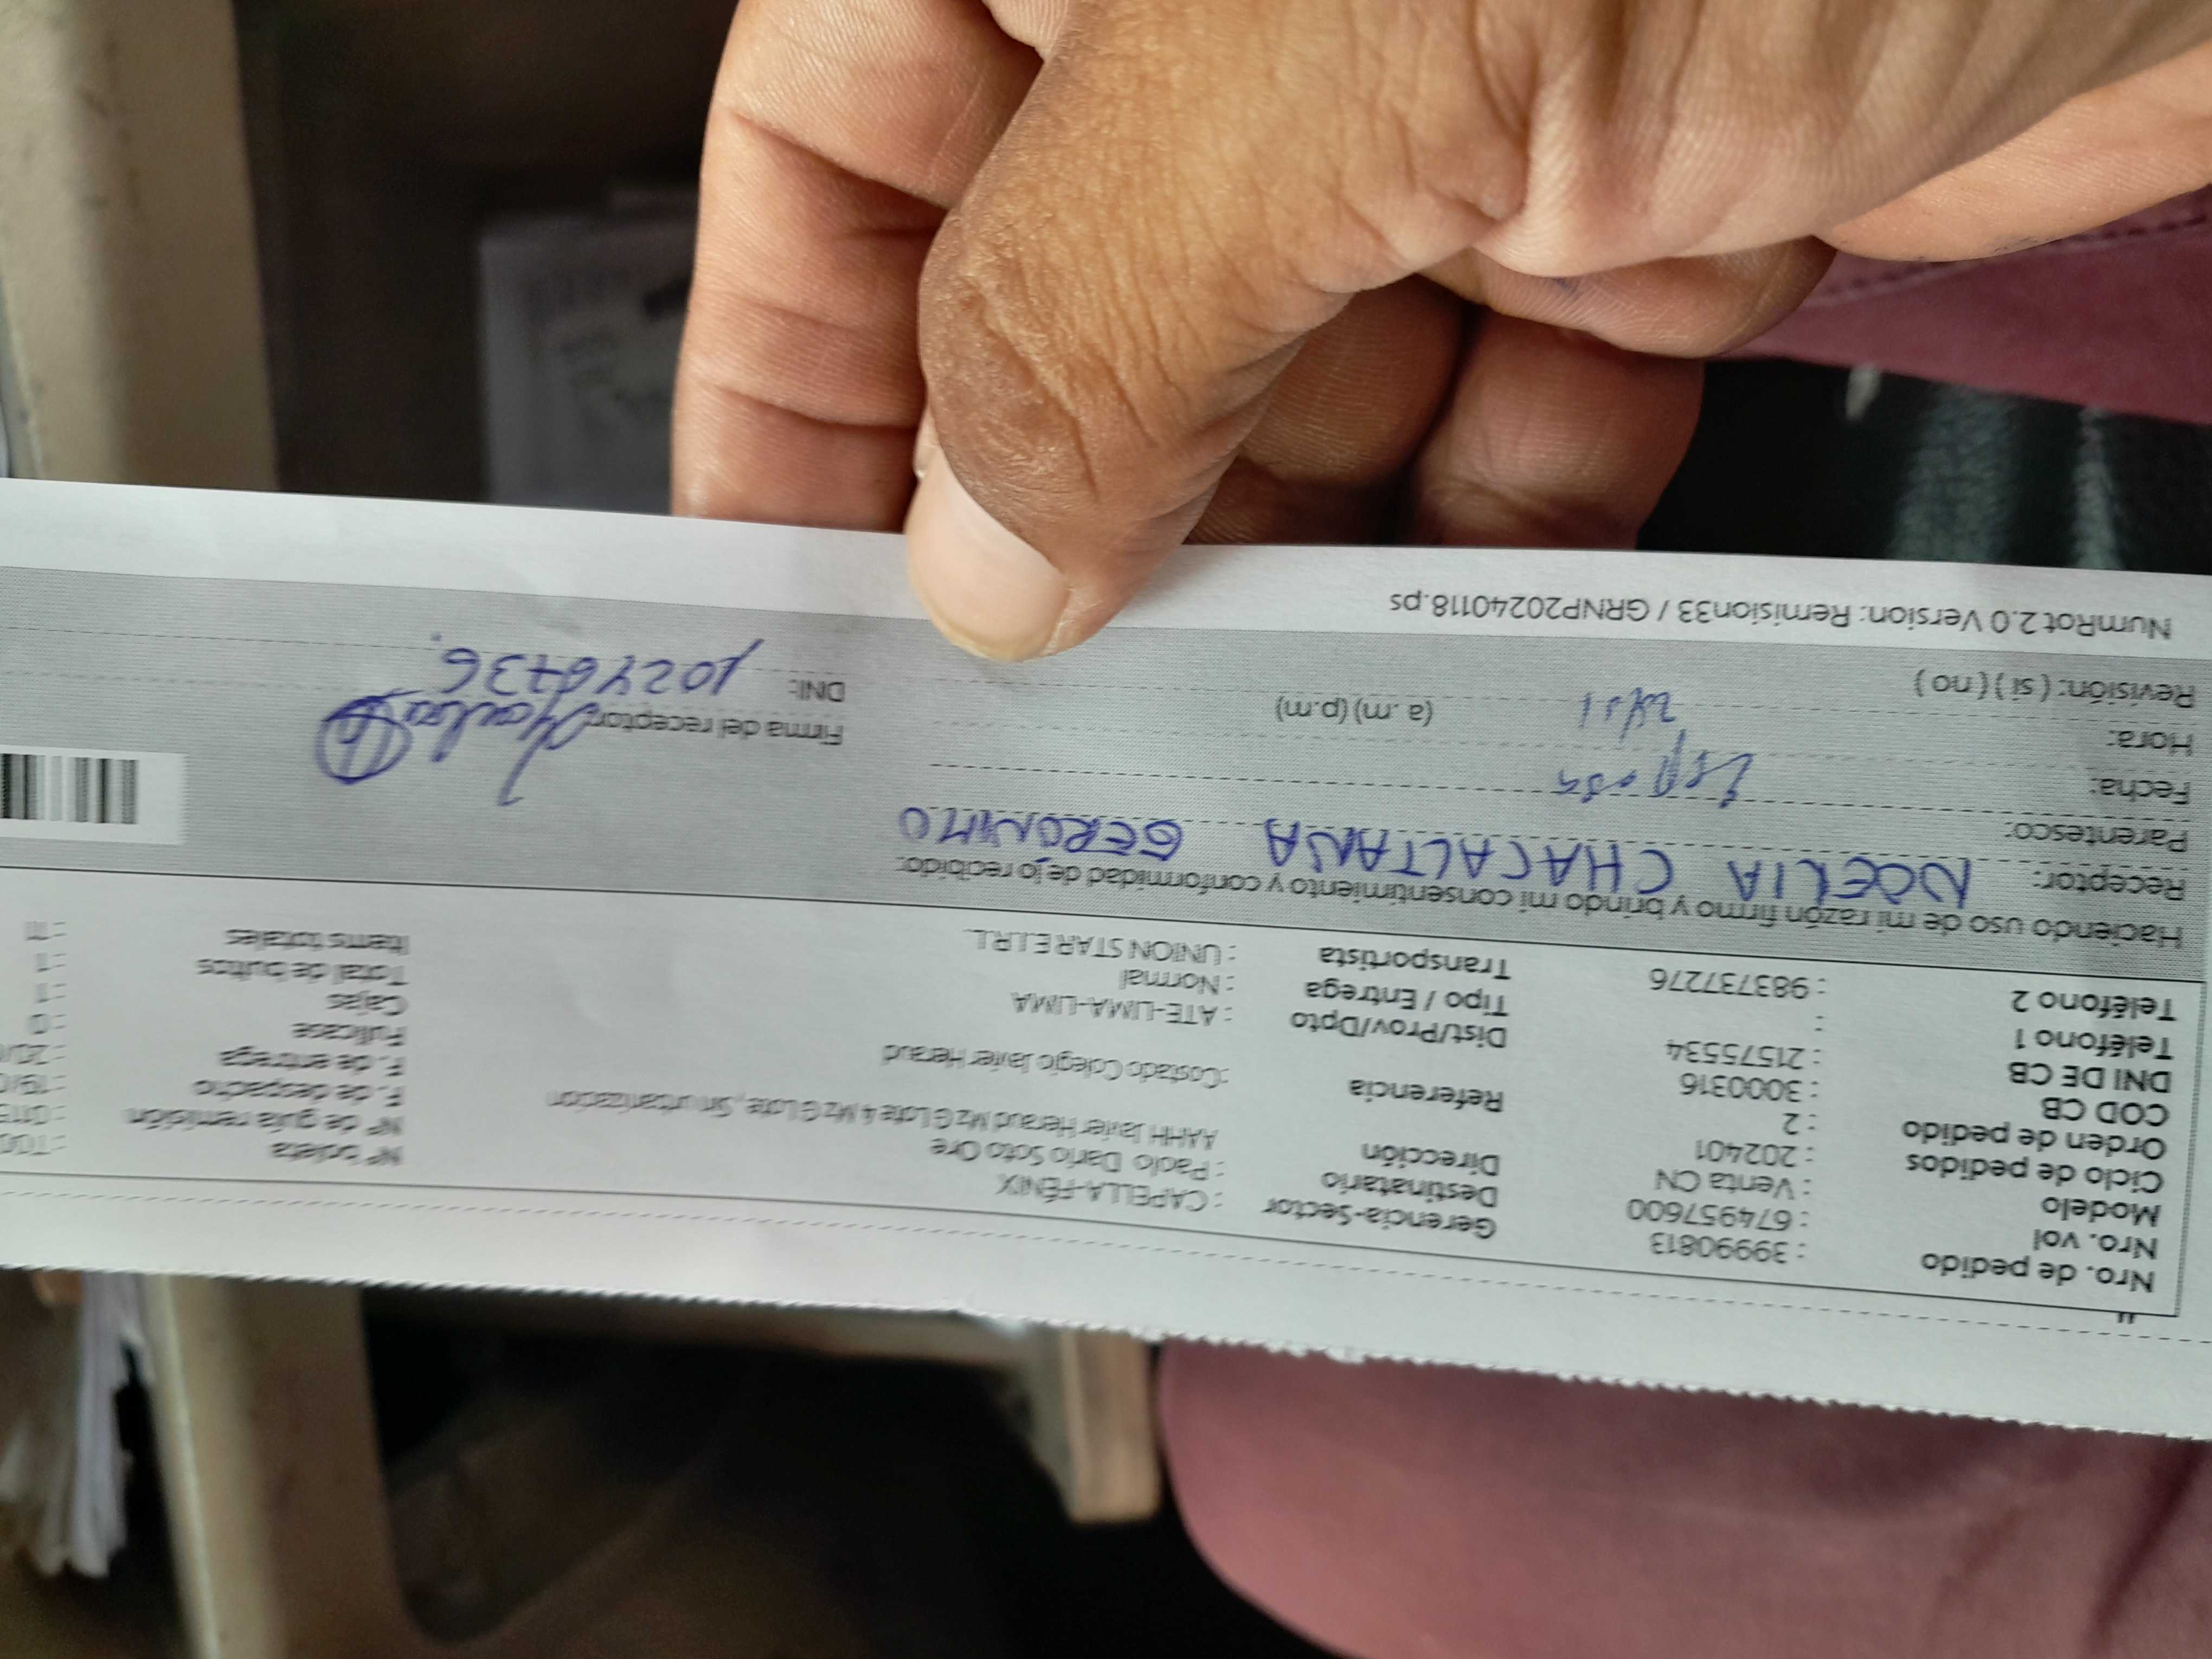 Nro. de pedido : 39990813 Gerencia-Sector : CAPELLA-FÉNIX Nº boleta
Nro. vol : 674957600 Destinatario : Paolo Dario Soto Ore Nº de guía remisión
Modelo : Venta CN Dirección AAHH Javier Heraud Mz G Lote 4 Mz G Lote, Sin urbanizacion F. de despacho
Ciclo de pedidos : 202401 F. de entrega
Orden de pedido : 2 Referencia : Costado Colegio Javier Heraud Fullcase : 0
COD CB : 3000316 Cajas : 1
DNI DE CB : 21575534 Dist/Prov/Dpto : ATE-LIMA-LIMA Total de bultos : 1
Teléfono 1 : Tipo / Entrega : Normal Items totales : 11
Teléfono 2 : 983737276 Transportista : UNION STAR E.I.R.L.
Haciendo uso de mi razón firmo y brindo mi consentimiento y conformidad de lo recibido:
Receptor: NOELIA CHACALTANA GERONIMO
Parentesco: Esposa
Fecha:
Hora: (a. m) (p.m) Firma del receptor
Revisión: ( si ) ( no ) DNI:
NumRot 2.0 Version: Remision33 / GRNP20240118.ps